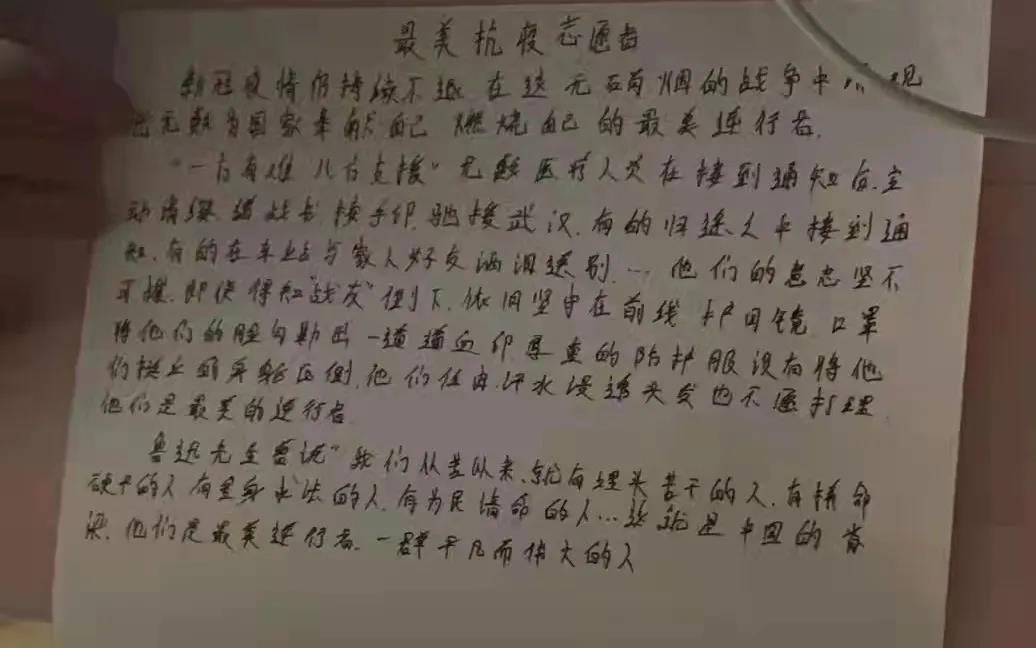 最美抗疫志愿者
新冠疫情仍持续不退 在这无硝烟的战争中 现
出无数为国家奉献自己 燃烧自己的最美逆行者.
"一方有难 八方支援" 无数医疗人员在接到通知后.主
动请缨 递战书 按手印.驰援武汉.有的归途之中接到通
知.有的在车站与家人好友洒泪送别…他们的意志坚不
可摧.即使得知"战友"倒下.依旧坚守在前线 护目镜 口罩
将他们的脸勾勒出一道道血印厚重的防护服没有将他
们 压倒.他们任由汗水浸透头发也不 打理
他们是最美的逆行者.
鲁迅先生曾说"我们从古以来.就有埋头苦干的人.有拼命
硬干的人有舍身求法的人.有为民请命的人…这就是中国的脊
梁.他们是最美逆行者.一群平凡而伟大的人